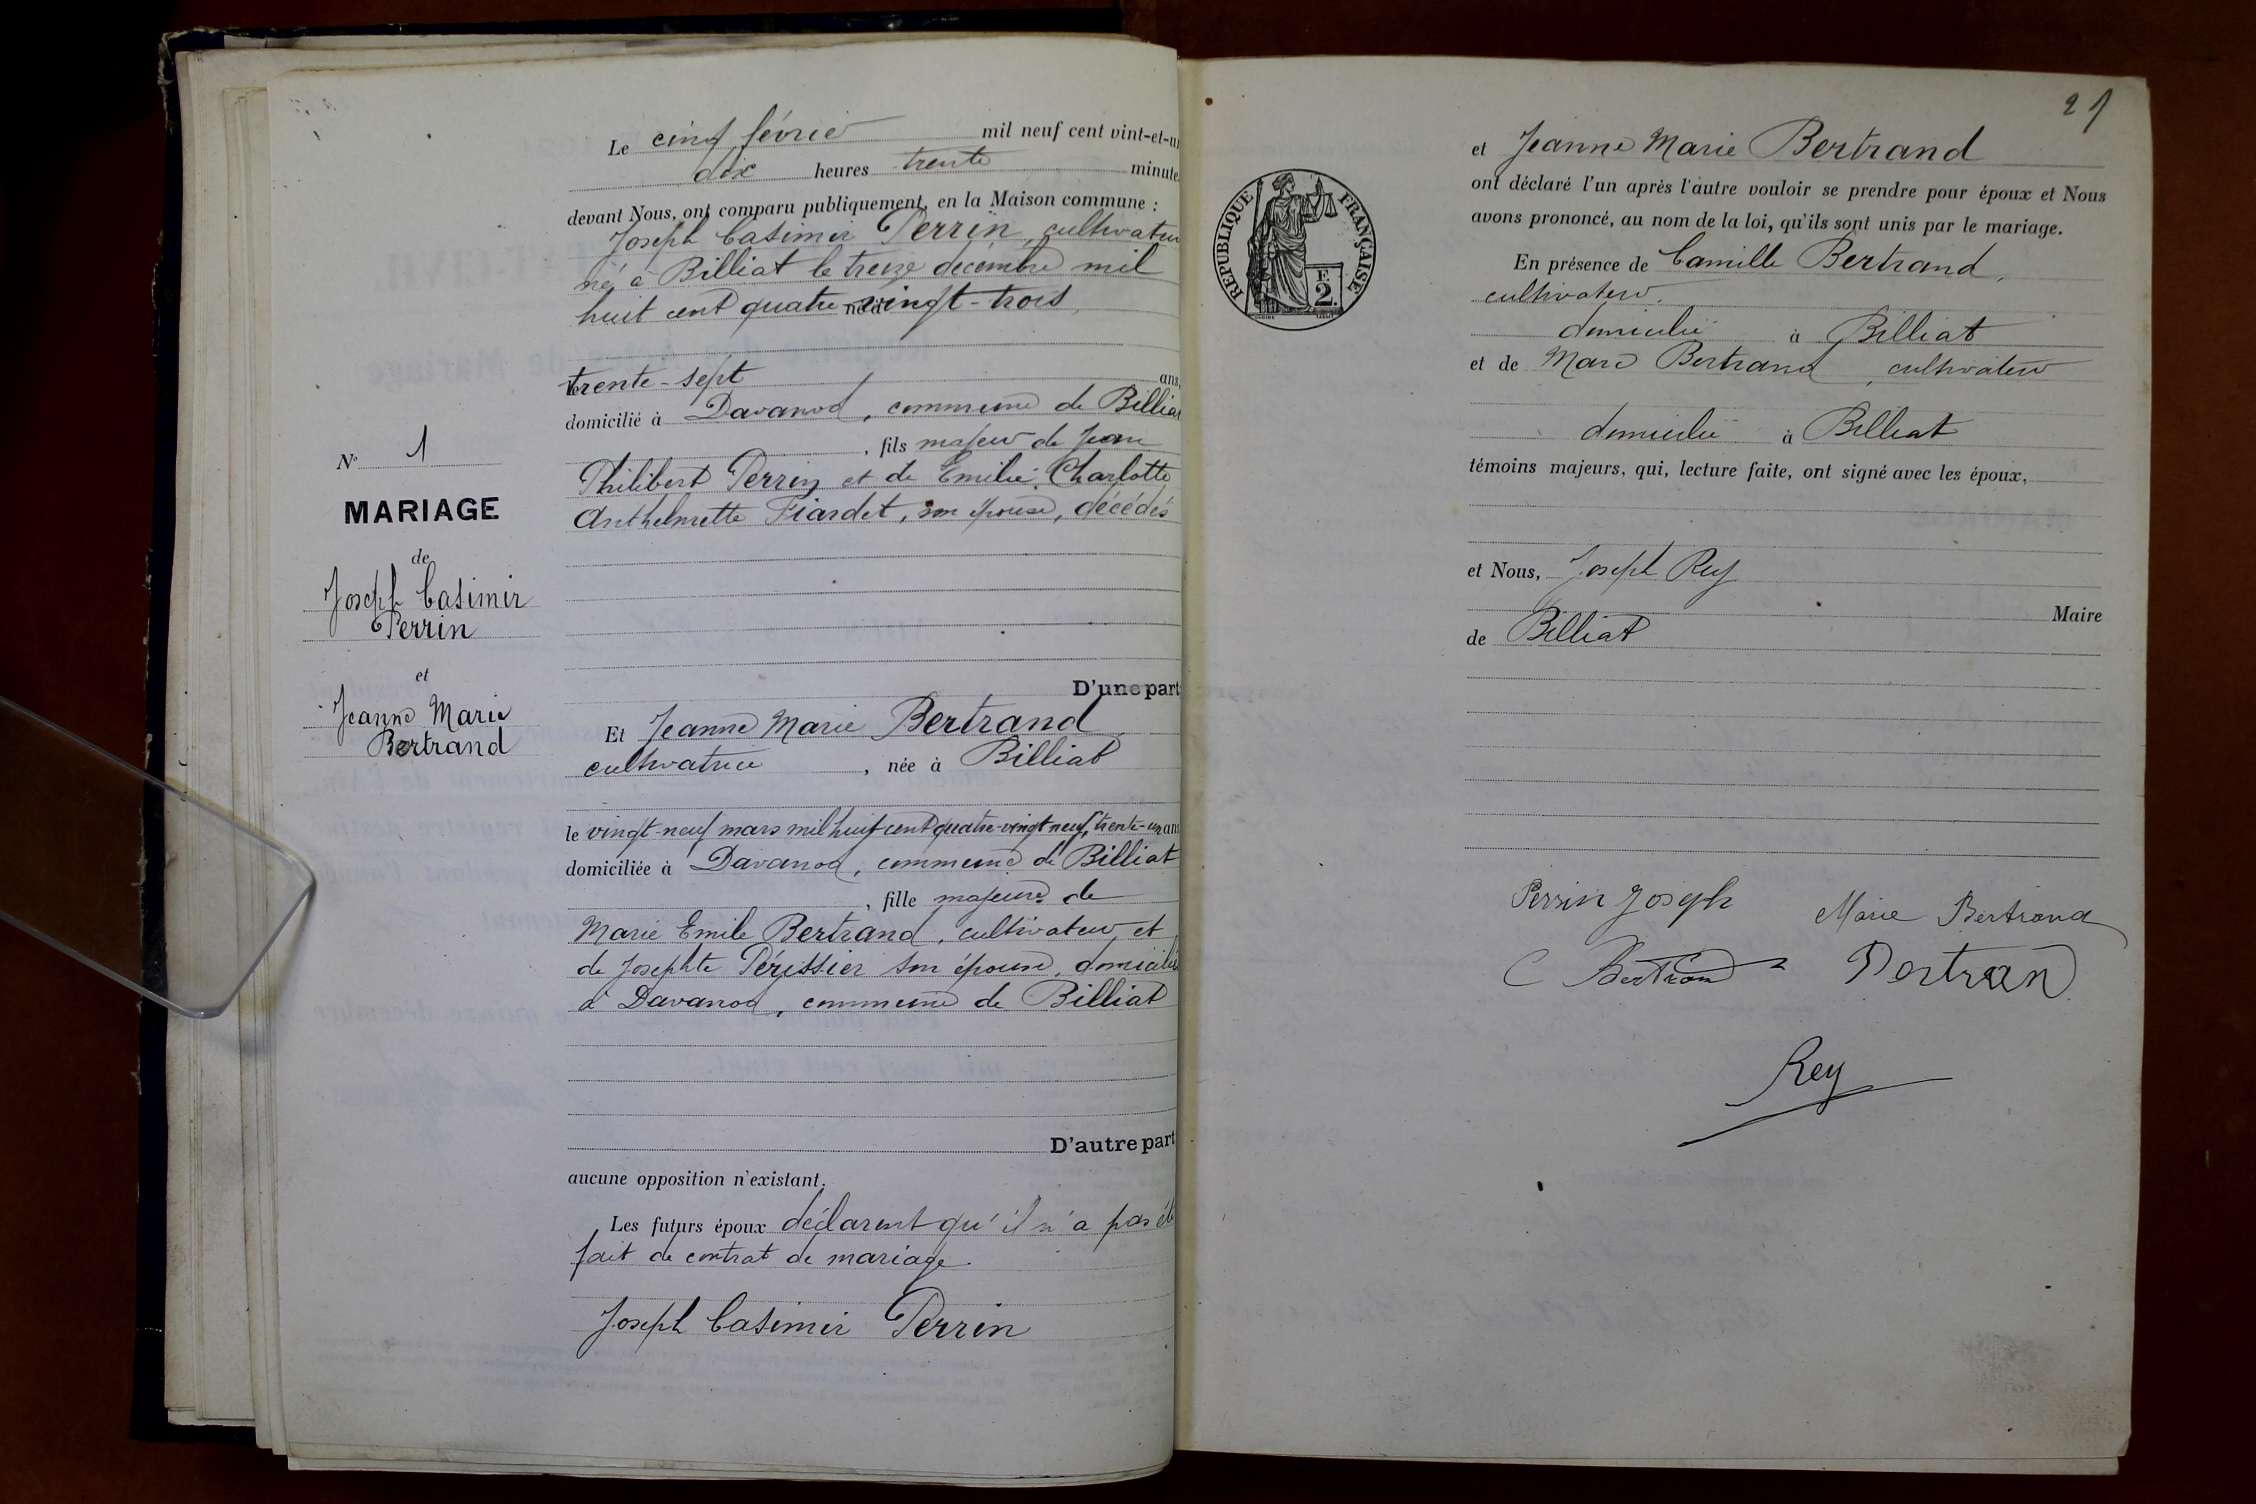 Le cinq février mil neuf cent vint-et-un
dix heures trente minutes
devant Nous, ont comparu publiquement, en la Maison commune :
Joseph Casimir Perrin, cultivateur
né à Billiat le treize décembre mil
huit cent quatre-vingt-trois,
trente-sept ans,
domicilié à Davanod, commune de Billiat
, fils majeur de Jean
Philibert Perrin et de Emilie Charlotte
Anthelmette Fiardet, son épouse, décédés
D'une part
Et Jeanne Marie Bertrand
cultivatrice, née à Billiat
le vingt-neuf mars mil huit cent quatre-vingt neuf, trente-un ans
domiciliée à Davanod, commune de Billiat
, fille majeure de
Marie Emile Bertrand, cultivateur, et
de Josephte Périssier son épouse, domiciliés
à Davanod, commune de Billiat
D'autre part
aucune opposition n'existant.
Les futurs époux déclarent qu'il n'a pas été
fait de contrat de mariage.
Joseph Casimir Perrin
N° 1
MARIAGE
de
Joseph Casimir
Perrin
et
Jeanne Marie
Bertrand
21
RÉPUBLIQUE FRANÇAISE
F
2
et Jeanne Marie Bertrand
ont déclaré l'un après l'autre vouloir se prendre pour époux et Nous
avons prononcé, au nom de la loi, qu'ils sont unis par le mariage.
En présence de Camille Bertrand,
cultivateur.
domicilié à Billiat
et de Marc Bertrand, cultivateur
domicilié à Billiat
témoins majeurs, qui, lecture faite, ont signé avec les époux,
et Nous, Joseph Rey
Maire
de Billiat
Perrin Joseph Marie Bertrand
C Bertrand Bertran
Rey